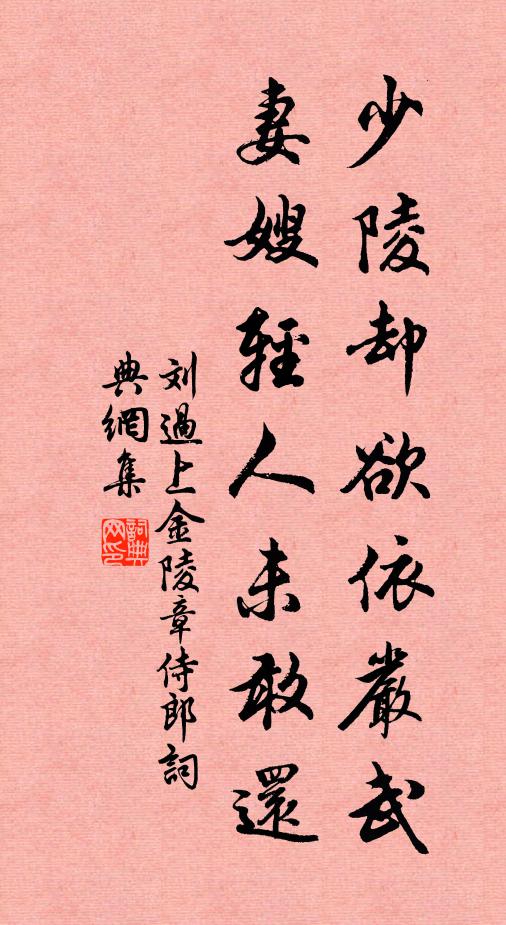 少陵却欲依嚴武
妻嫂輕人未敢還
刘過上金陵章侍郎詞
典網集
詞典网印